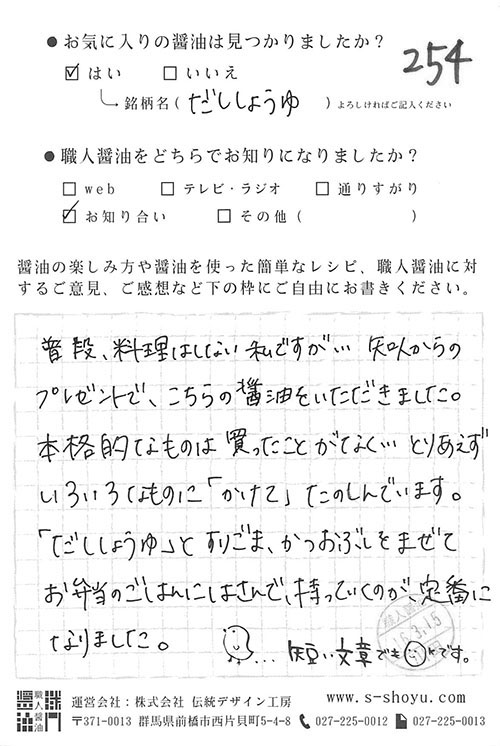 ● お気に入りの醤油は見つかりましたか？
254
☑ はい □ いいえ
銘柄名( だししょうゆ ) よろしければご記入ください
● 職人醤油をどちらでお知りになりましたか？
□ web □ テレビ・ラジオ □ 通りすがり
☑ お知り合い □ その他 ( )
醤油の楽しみ方や醤油を使った簡単なレシピ、職人醤油に対
するご意見、ご感想など下の枠にご自由にお書きください。
普段、料理はしない私ですが… 知人からの
プレゼントで、こちらの醤油をいただきました。
本格的なものは買ったことがなく… とりあえず
いろいろなものに「かけて」たのしんでいます。
「だししょうゆ」とすりごま、かつおぶしをまぜて
お弁当のごはんにはさんで、持っていくのが、定番に
なりました。
… 短い文章でも です。
3.15
職人醤油
運営会社：株式会社 伝統デザイン工房 www.s-shoyu.com
〒371-0013 群馬県前橋市西片貝町5-4-8 027-225-0012 027-225-0013